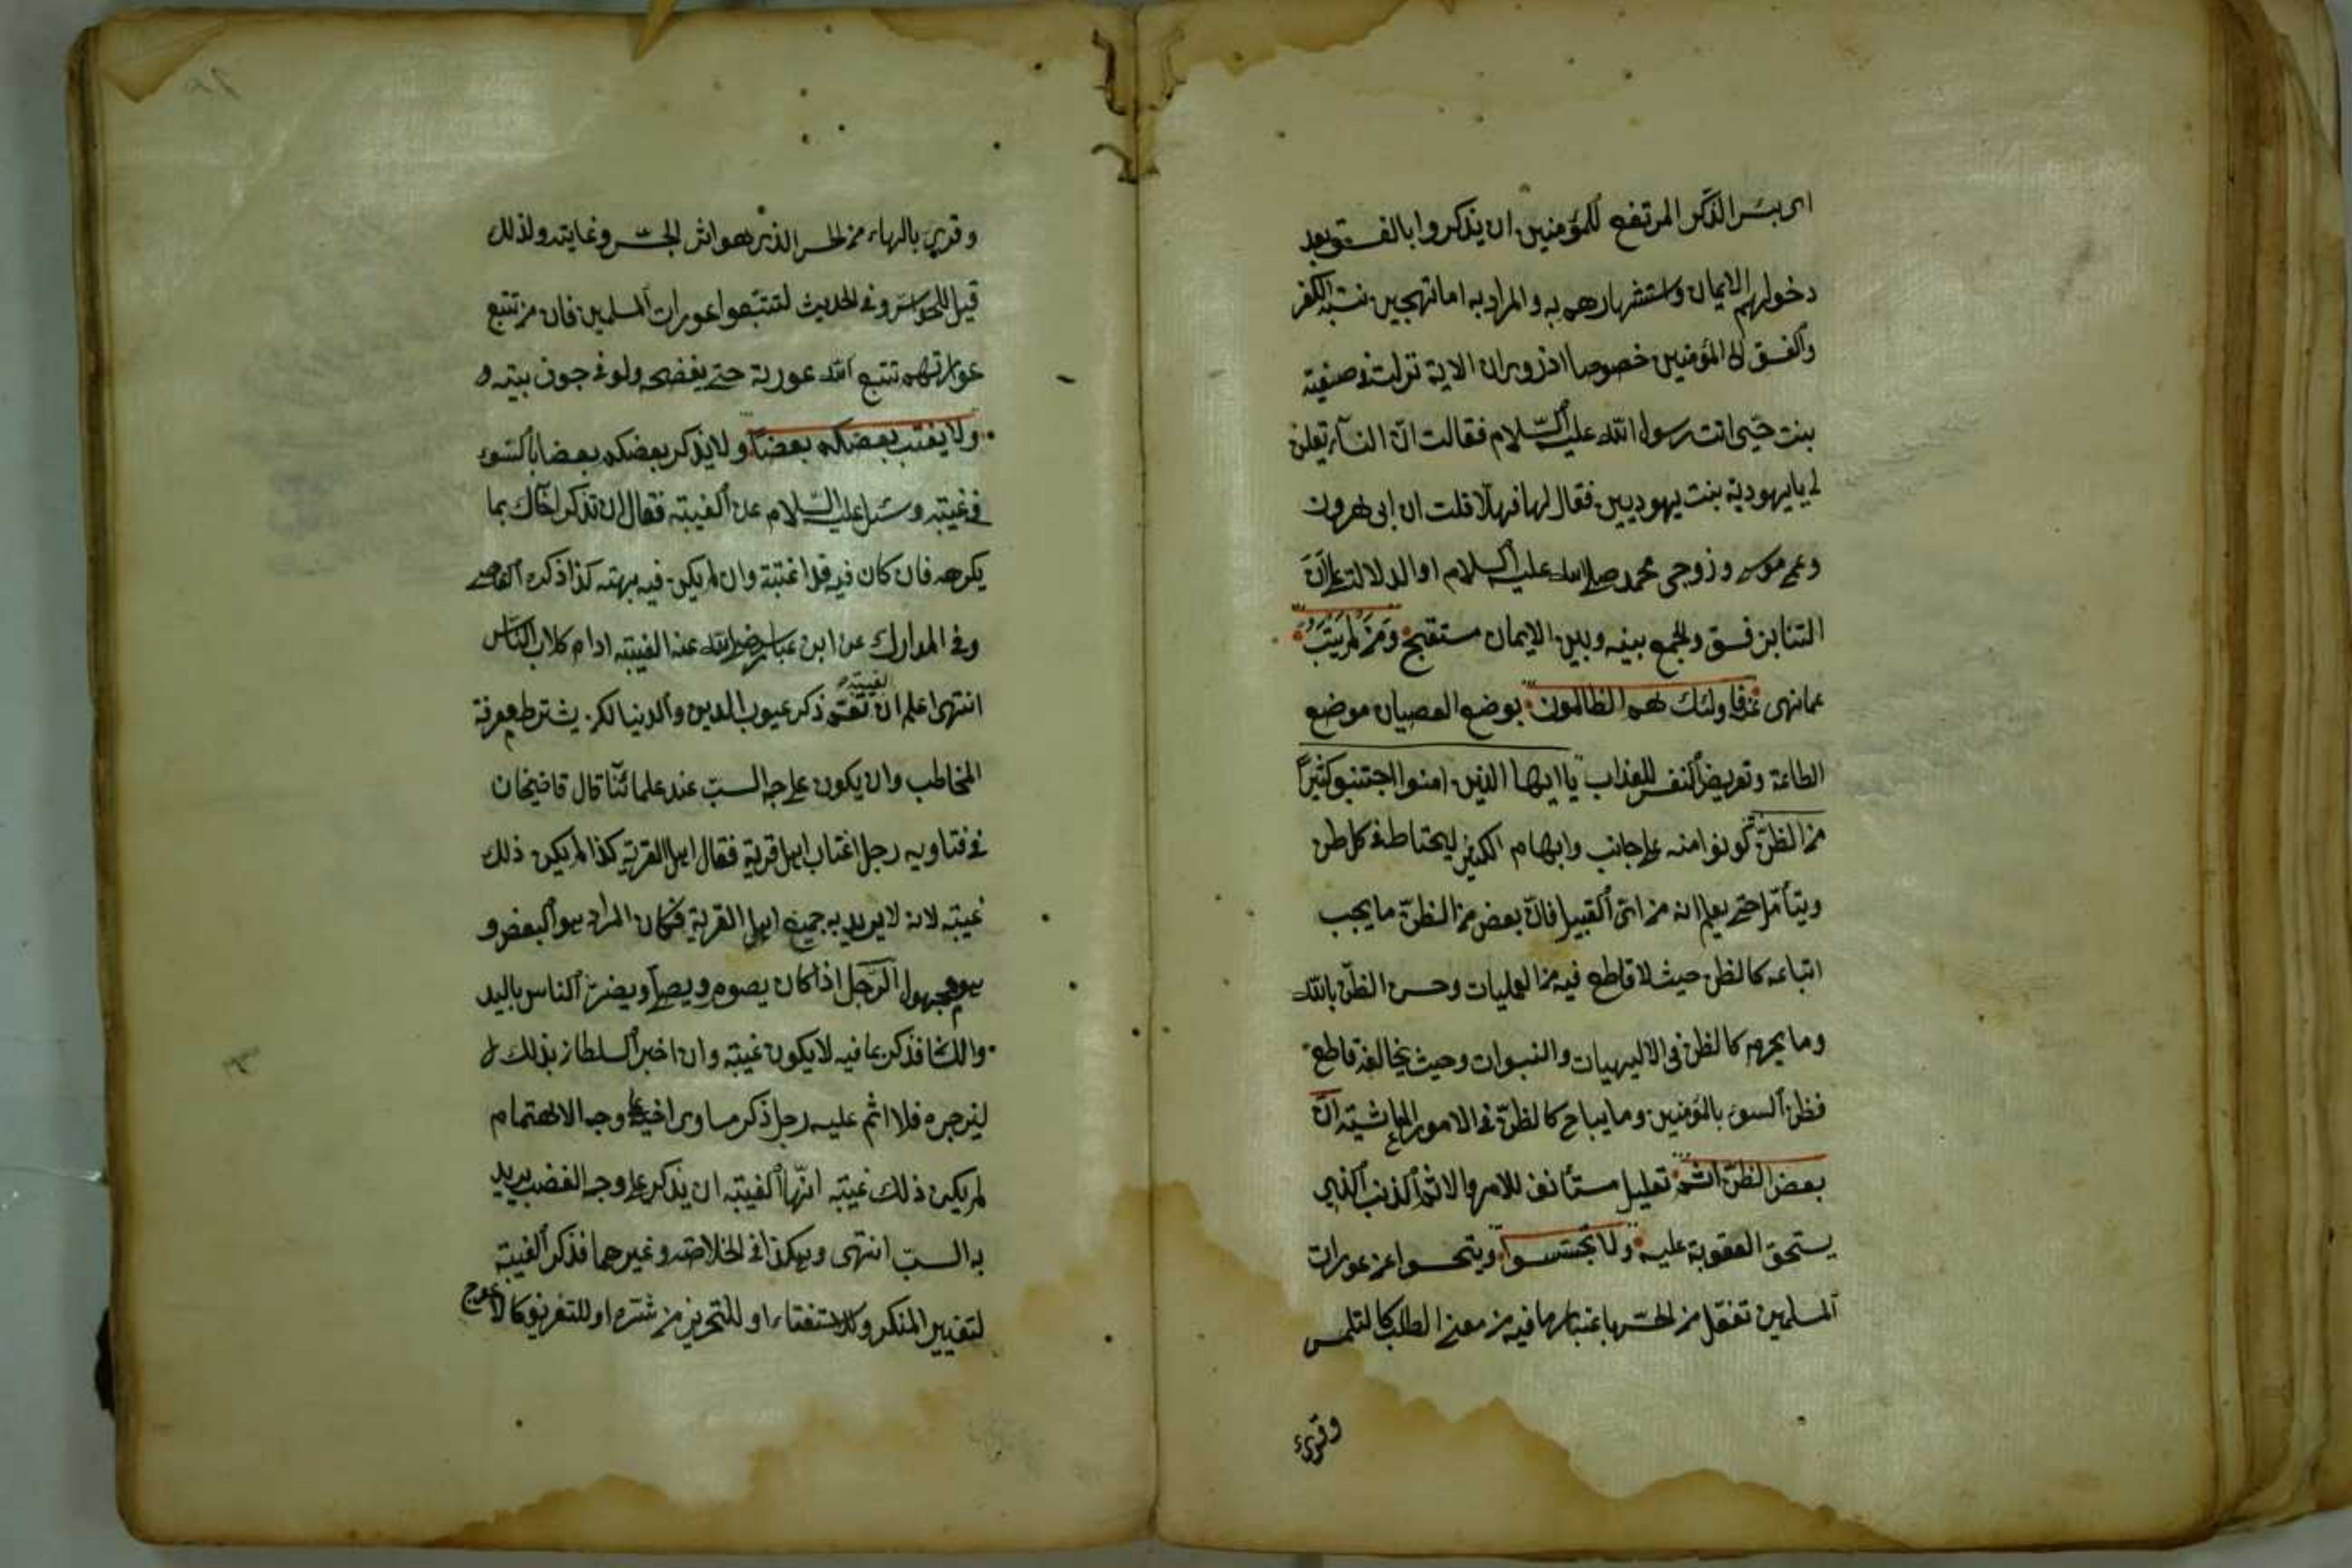 اى بئس الذكر المرتفع للمؤمنين ان يذكروا بالفسوق بعد
دخولهم الايمان واستشهارهم به والمراد به اما تهجين نسبة الكفر
والفسق الى المؤمنين خصوصا اذ روى ان الاية نزلت فى صفية
بنت حيى اتت رسول الله عليه السلام فقالت ان النساء يقلن
لى يا يهودية بنت يهوديين فقال لها فهلا قلت ان ابى هرون
وعمى موسى وزوجى محمد صلى الله عليه السلام او الدلالة على ان
التنابز فسق والجمع بينه وبين الايمان مستقبح ومن لم يتب
عما نهى عنه فاولئك هم الظالمون بوضع العصيان موضع
الطاعة وتعريض النفس للعذاب يا ايها الذين امنوا اجتنبو كثيرا
من الظن كونوا منه على جانب وابهام الكثير ليحتاط فى كل ظن
ويتأمل حتى يعلم انه من اى القبيل فان بعض من الظن ما يجب
اتباعه كالظن حيث لا قاطع فيه من العمليات وحسن الظن بالله
وما يحرم كالظن فى الالهيات والنبوات وحيث يخالفه قاطع
فظن السوء بالمؤمنين وما يباح كالظن فى الامور المعاشية ان
بعض الظن اثم تعليل مستأنف للامر والاثم الذنب الذى
يستحق العقوبة عليه ولا تجسسوا ويتحسوا عن عورات
المسلمين تفعل من الجس باعتبار ما فيه من معنى الطلب كالتلمس
وقرئ
وقرئ بالهاء من الحس الذى هو اثر الجس وغايته ولذلك
قيل للحواس وفى الحديث لتتبعوا عورات المسلمين فان من تتبع
عوراتهم تتبع الله عورته حتى يفضحه ولو فى جوف بيته و
ولا يغتب بعضكم بعضا ولا يذكر بعضكم بعضا بالسوء
فى غيبته وسئل عليه السلام عن الغيبته فقال ان تذكر اخاك بما
يكرهه فان كان فيه فقد اغتبته وان لم يكن فيه بهته كذا ذكره القاضى
وفى المدارك عن ابن عباس رضى الله عنه الغيبته ادام كلاب الناس
انتهى اعلم ان الغيبة تعم ذكر عيوب الدين والدنيا لكن يشترط معرفة
المخاطب وان يكون على وجه السب عند علمائنا قال قاضيخان
فى فتاويه رجل اغتاب اهل قرية فقال اهل القرية كذا لم يكن ذلك
غيبته لانه لا يريد به جميع اهل القرية فكان المراد هو البعض و
هو مجهول الرجل اذا كان يصوم ويصلى ويضر الناس باليد
واللسان فذكر بما فيه لا يكون غيبته وان اخبر السلطان بذلك
ليزجره فلا اثم عليه رجل ذكر مساوى اخيه على وجه الاهتمام
لم يكن ذلك غيبته انها الغيبته ان يذكر على وجه الغضب يريد
به السب انتهى وهكذا فى الخلاصة وغيرهما فذكر الغيبة
لتغيير المنكر وللاستفتاء او للتحذير من شره او للتعريف كالاعرج